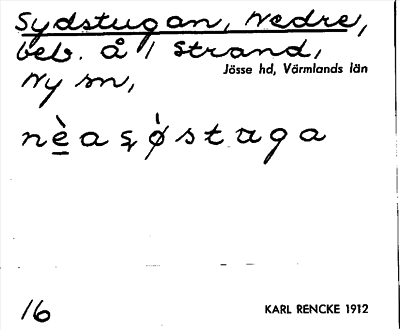 Sydstugan, Nedre,
beb. å 1 Strand,
Jösse hd, Värmlands län
Ny sn,
nè̱a ȿǿstuga
16 KARL RENCKE 1912